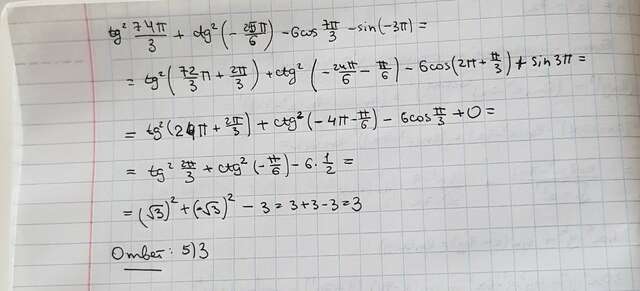 tg² 74π/3 + ctg²(-25π/6) - 6cos 7π/3 - sin(-3π) =
= tg²(72/3 π + 2π/3) + ctg²(-24π/6 - π/6) - 6cos(2π + π/3) + sin 3π =
= tg²(24π + 2π/3) + ctg²(-4π - π/6) - 6cos π/3 + 0 =
= tg² 2π/3 + ctg²(-π/6) - 6 · 1/2 =
= (√3)² + (-√3)² - 3 = 3 + 3 - 3 = 3
Ответ: 5) 3